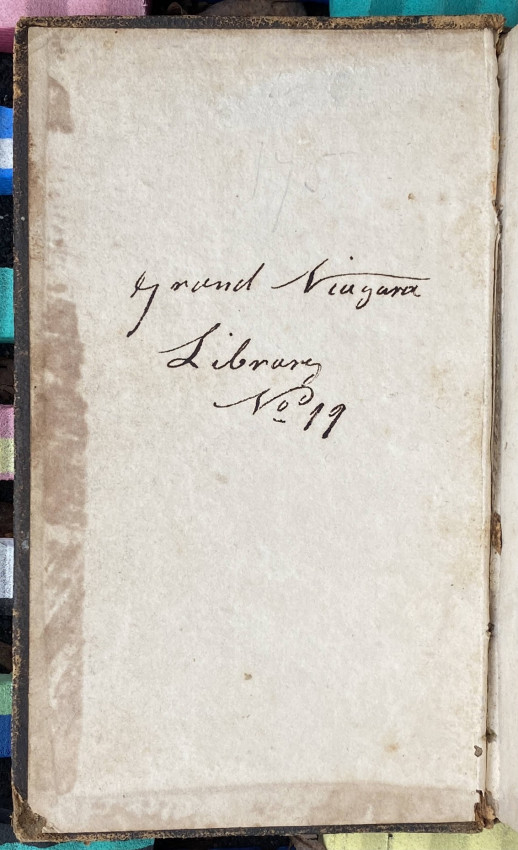 175
Grand Niagara
Library
No 19